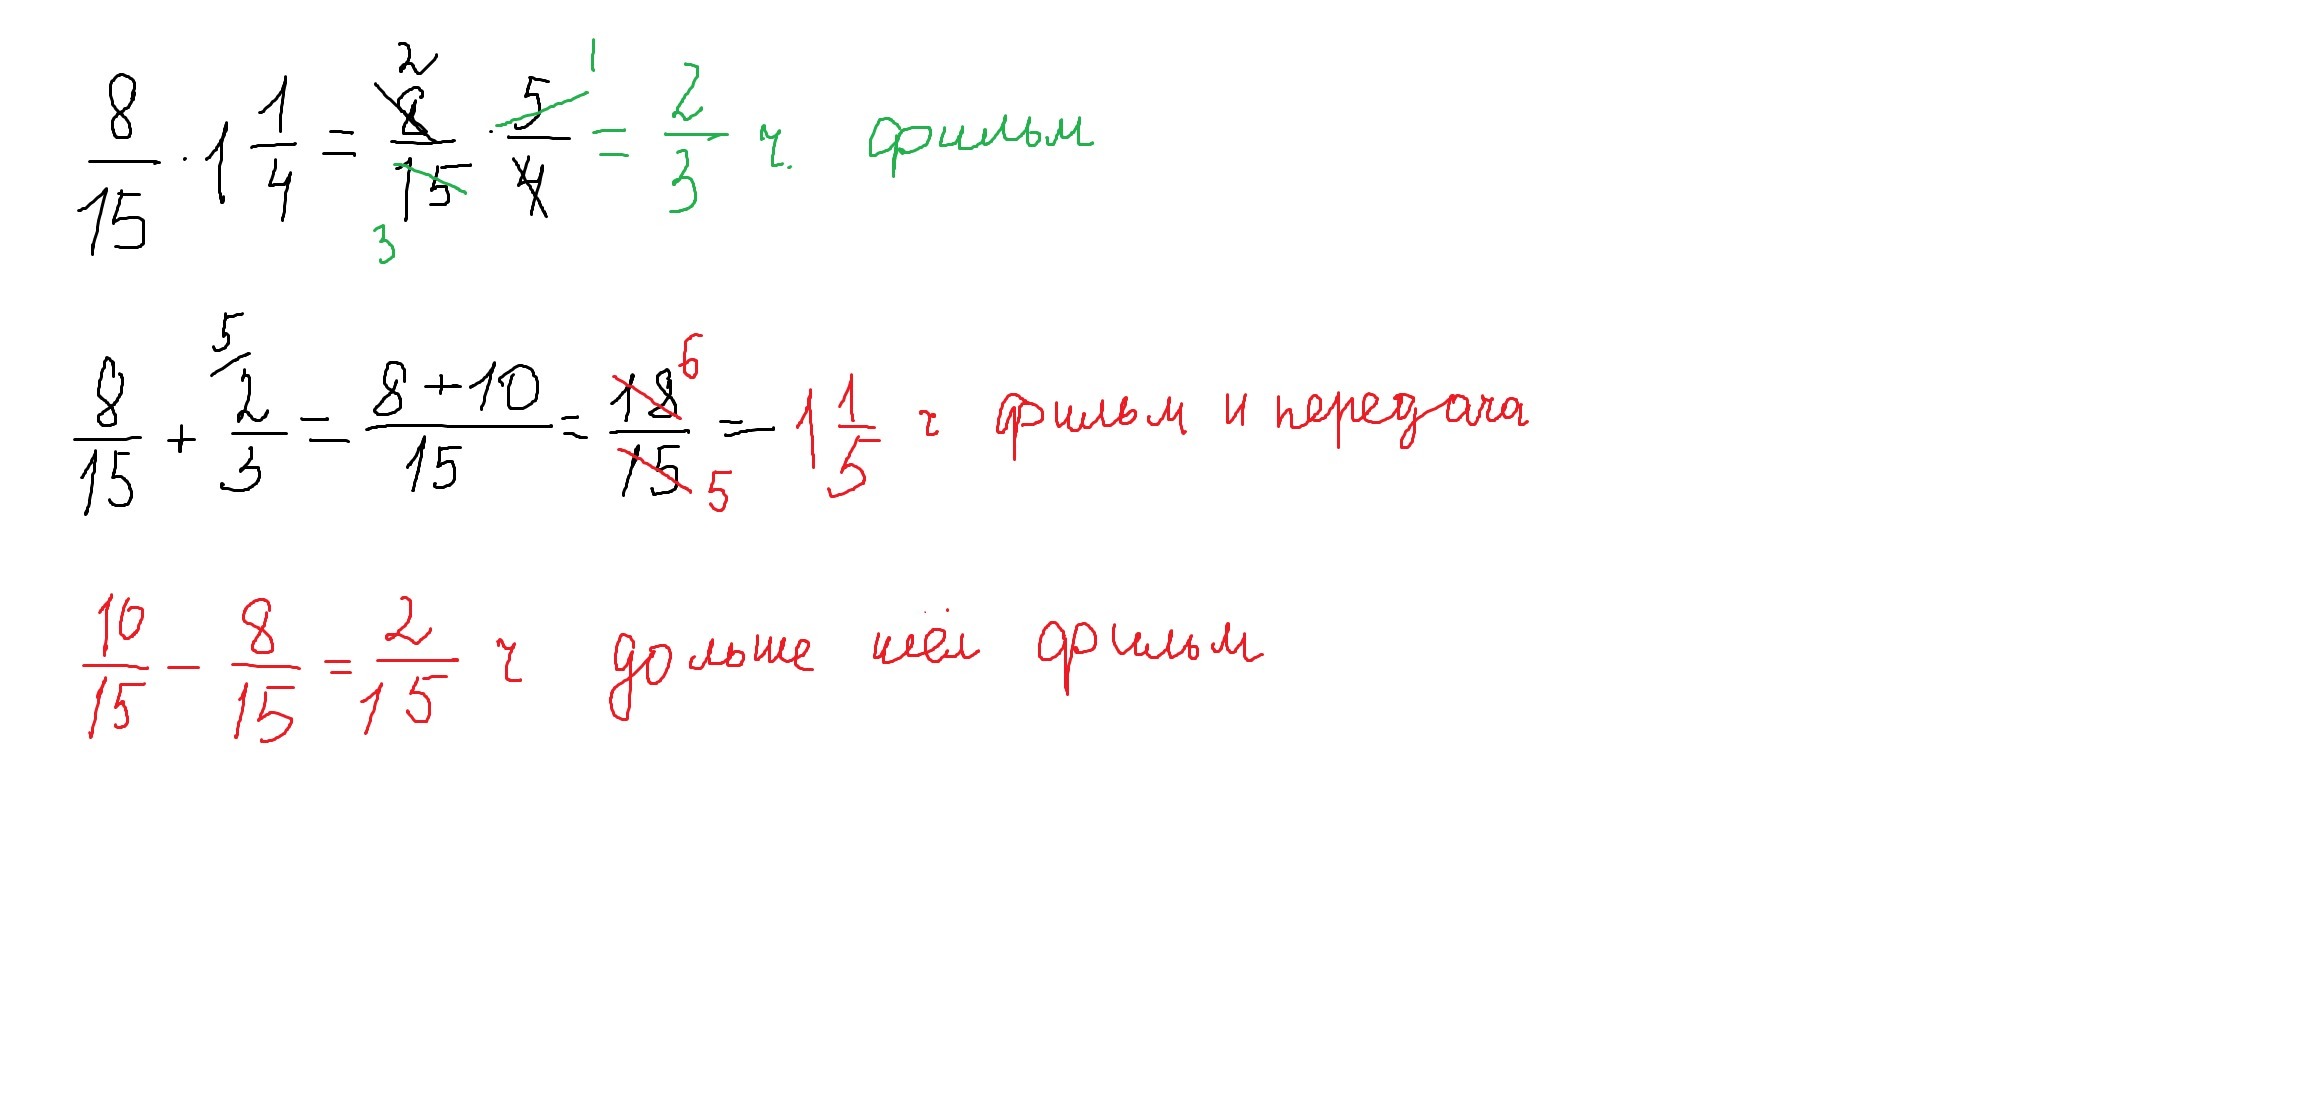 8/15 · 1 1/4 = 8/15 · 5/4 = 2/3 ч. фильм
8/15 + 2/3 = 8+10/15 = 18/15 = 1 1/5 ч фильм и передача
10/15 − 8/15 = 2/15 ч дольше шёл фильм